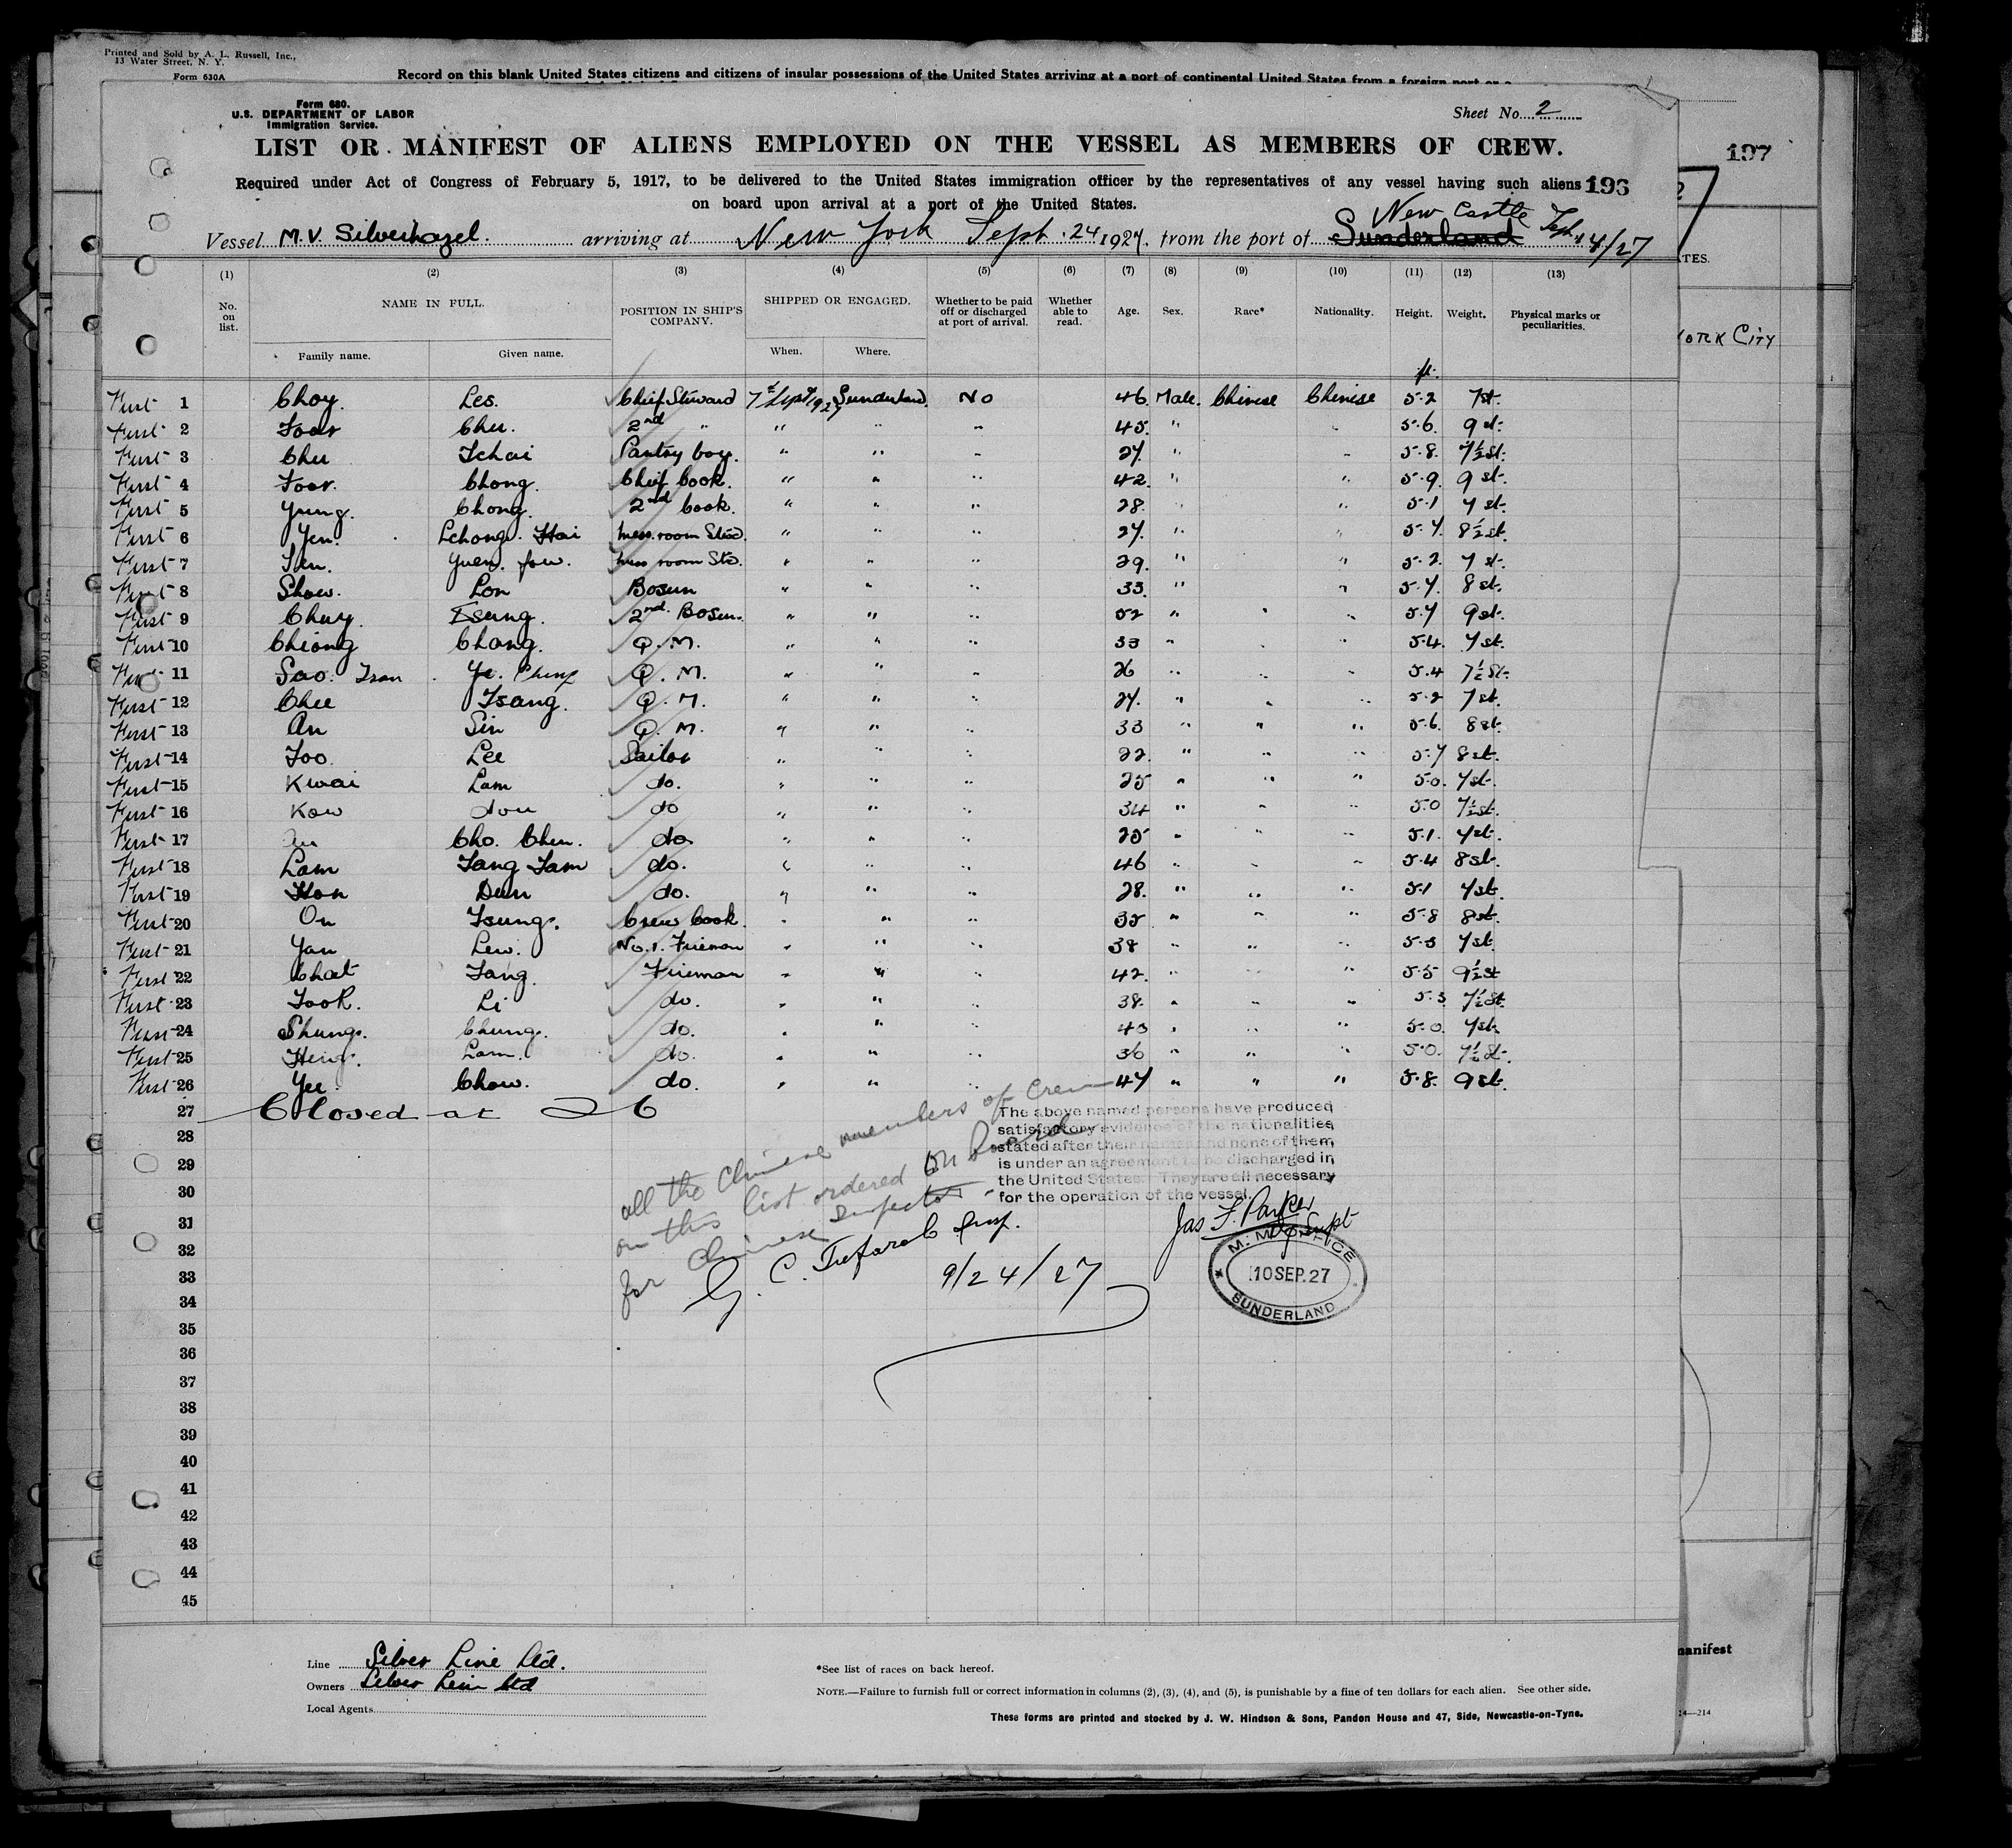 Printed and Sold by A. L. Russell, Inc.,
13 Water Street, N. Y.
Form 630A
Record on this blank United States citizens and citizens of insular possessions of the United States arriving at a port of continental United States from a foreign port or a
Form 680.
U.S. DEPARTMENT OF LABOR
Immigration Service.
Sheet No. 2
LIST OR MANIFEST OF ALIENS EMPLOYED ON THE VESSEL AS MEMBERS OF CREW.
197
Required under Act of Congress of February 5, 1917, to be delivered to the United States immigration officer by the representatives of any vessel having such aliens 196
on board upon arrival at a port of the United States.
New Castle Sept 14/27
Vessel M.V. Silverhazel. arriving at New York Sept. 24 1927. from the port of Sunderland
TES.
(1) (2) (3) (4) (5) (6) (7) (8) (9) (10) (11) (12) (13)
No. on list. NAME IN FULL. POSITION IN SHIP'S COMPANY. SHIPPED OR ENGAGED. Whether to be paid off or discharged at port of arrival. Whether able to read. Age. Sex. Race* Nationality. Height. Weight. Physical marks or peculiarities.
ORK CITY
Family name. Given name. When. Where.
ft.
First 1 Choy. Les. Chief Steward 7th Sept 1927 Sunderland. No 46. Male. Chinese Chinese 5.2 7st.
First 2 Foar Chu. 2nd " " " " 45. " " 5.6. 9 st.
First 3 Chu Tchai Pantry boy. " " " 27. " " 5.8. 7½st.
First 4 Foar. Chong. Chief Cook. " " " 42. " " 5.9. 9 st.
First 5 Yung. Chong. 2nd Cook. " " " 28. " " 5.1 7 st.
First 6 Yen. Lchong. Hai Mess. room Std. " " " 27. " " 5.7. 8½st.
First 7 Yuen. fow. Mess room Std. " " " 29. " " 5.2. 7 st.
First 8 Show. Lon Bosun " " " 33. " " 5.7. 8 st.
First 9 Chay. Tsung. 2nd. Bosun. " " " 52 " " " 5.7 9st.
First 10 Chiong Chang. Q. M. " " " 33 " " 5.4. 7 st.
First 11 Sao. Tsan Ye. Ching Q. M. " " " 26 " " " 5.4 7½st.
First 12 Chee Tsang. Q. M. " " " 27. " " " 5.2 7st.
First 13 An Sin Q. M. " " " 33 " " " 5.6. 8st.
First 14 Foo. Lee Sailor " " " 22. " " " 5.7 8st.
First 15 Kwai Lam do. " " " 25 " " " 5.0. 7st.
First 16 Kow dou do " " " 34 " " " 5.0 7½st.
First 17 Cho. Chen. do " " " 25 " " " 5.1. 7st.
First 18 Lam Tang Tam do. " " " 46 " " " 5.4 8st.
First 19 Hon Dun do. " " " 28. " " " 5.1 7st.
First 20 On Tsung. Crew Cook. " " " 35 " " " 5.8 8st.
First 21 Yan Lew. No. 1. Fireman " " " 38 " " " 5.3 7st.
First 22 Chat Tang Fireman " " " 42. " " " 5.5 9½st
First 23 Took. Li do. " " " 38. " " " 5.3. 7½st.
First 24 Shung. Chung. do. " " " 40 " " " 5.0. 7st.
First 25 Heng. Lam. do. " " " 36 " " " 5.0. 7½st.
First 26 Yee. Chow. do. " " " 47 " " " 5.8. 9st.
27 Closed at 26
28
29
30
31
32
33
34
35
36
37
38
39
40
41
42
43
44
45
all the Chinese members of Crew
on this list ordered on Board
for Chinese Inspector
9/24/27
The above named persons have produced
satisfactory evidence of the nationalities
stated after their names and none of them,
is under an agreement to be discharged in
the United States. They are all necessary
for the operation of the vessel.
Jas F. Parker
Dy Supt
M. M. OFFICE
10 SEP. 27
SUNDERLAND
Line Silver Line Ltd.
Owners Silver Line Ltd
Local Agents
*See list of races on back hereof.
NOTE.—Failure to furnish full or correct information in columns (2), (3), (4), and (5), is punishable by a fine of ten dollars for each alien. See other side.
These forms are printed and stocked by J. W. Hindson & Sons, Pandon House and 47, Side, Newcastle-on-Tyne.
manifest
14—214